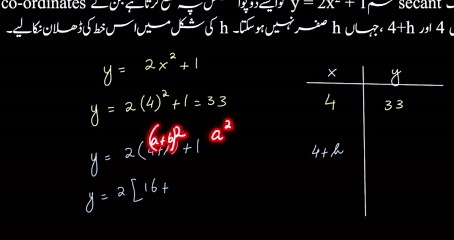 co-ordinates y = 2x² + 1 secant
4 اور 4+h، جہاں h صفر نہیں ہو سکتا۔ h کی شکل میں اس خط کی ڈھلان نکالیے۔
y = 2x² + 1
x y
y = 2(4)² + 1 = 33
4 33
(a+b)² a²
y = 2( + 1
4+h
y = 2[16+